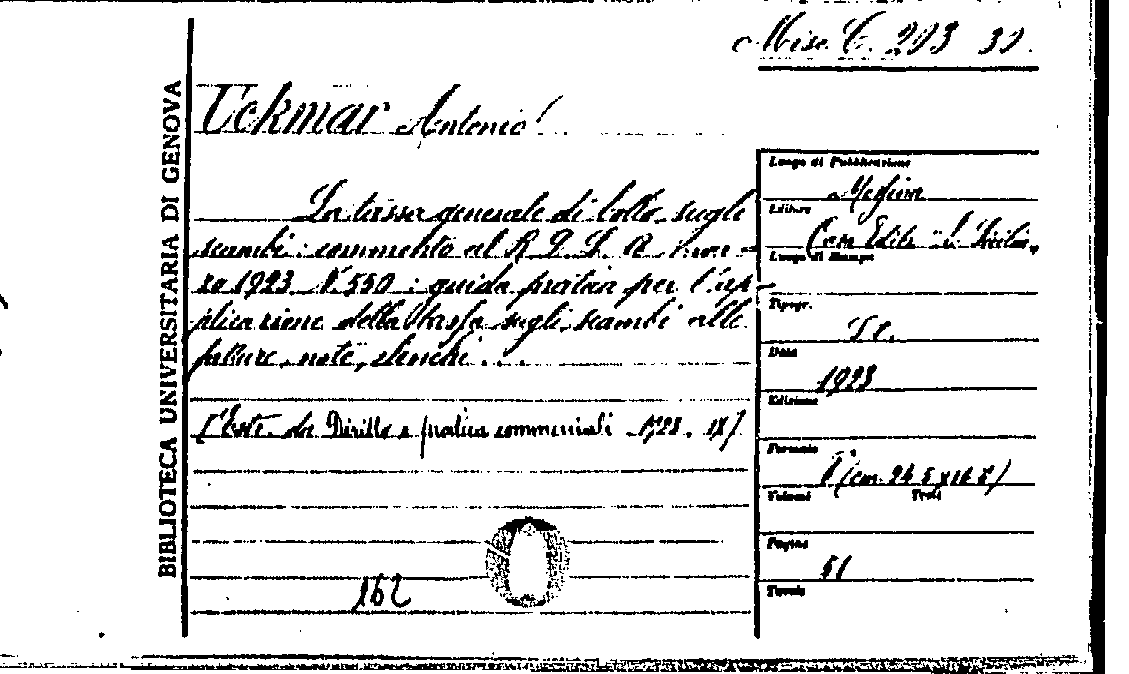 Misc. C. 203 30.
BIBLIOTECA UNIVERSITARIA DI GENOVA
Uckmar Antonio
La tassa generale di bollo sugli
scambi: commento al R. D. L.
1923 N. 550 : guida pratica per l'ap-
plicazione della tassa sugli scambi alle
fatture, note, elenchi...
[Estr. da Diritto e pratica commerciali 1923. IX]
162
Luogo di Pubblicazione
Messina
Editore
Casa Edit.
Luogo di Stampa
Tipogr.
St.
Data
1923
Edizione
Formato
8° (cm. 24.5 x 16.8)
Volumi Tomi
Pagine
51
Tavole